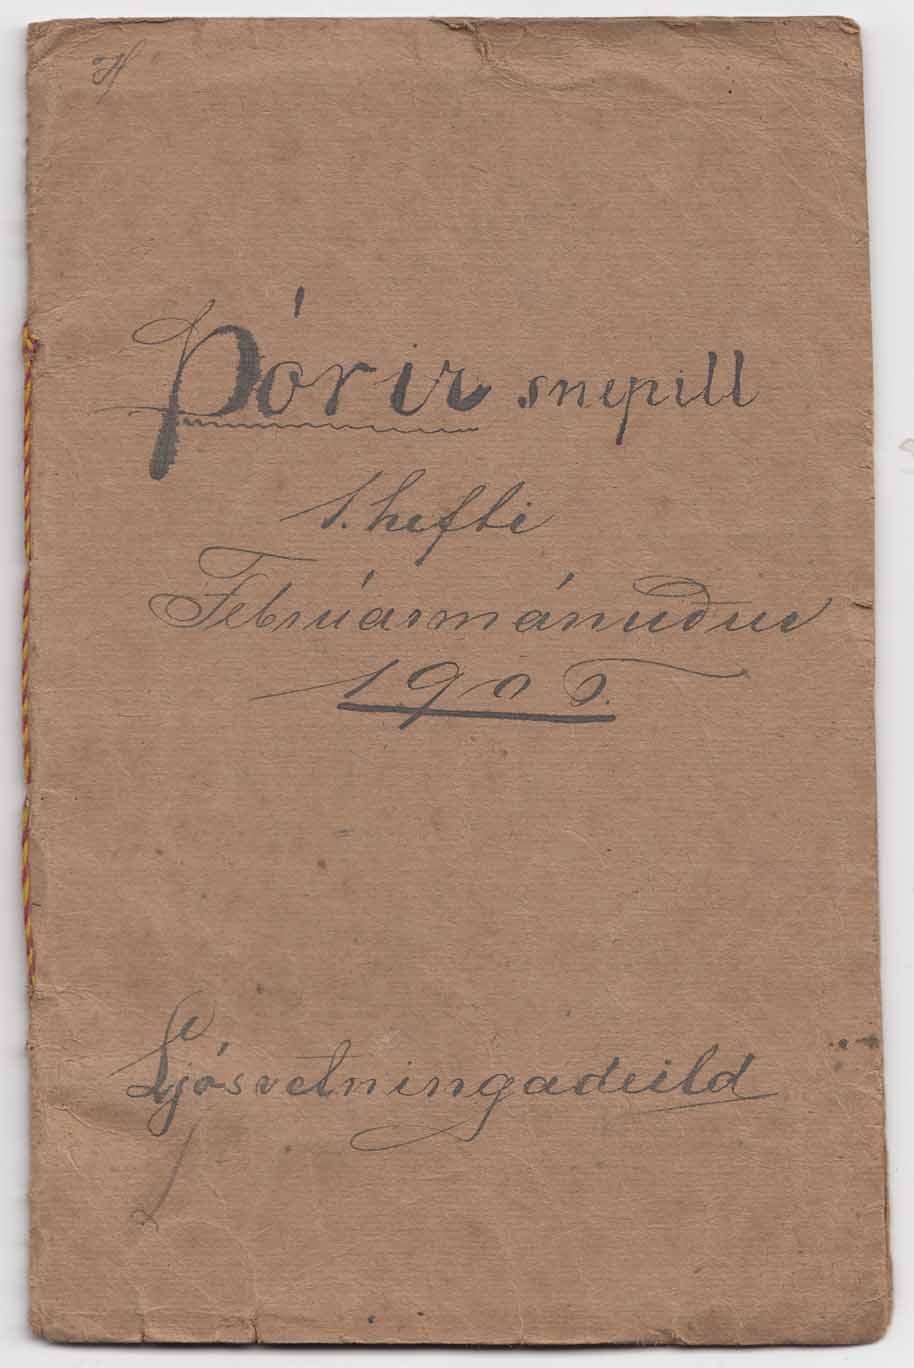 Þórir snepill
1. hefti
Febrúarmánuður
1905.
Ljósvetningadeild